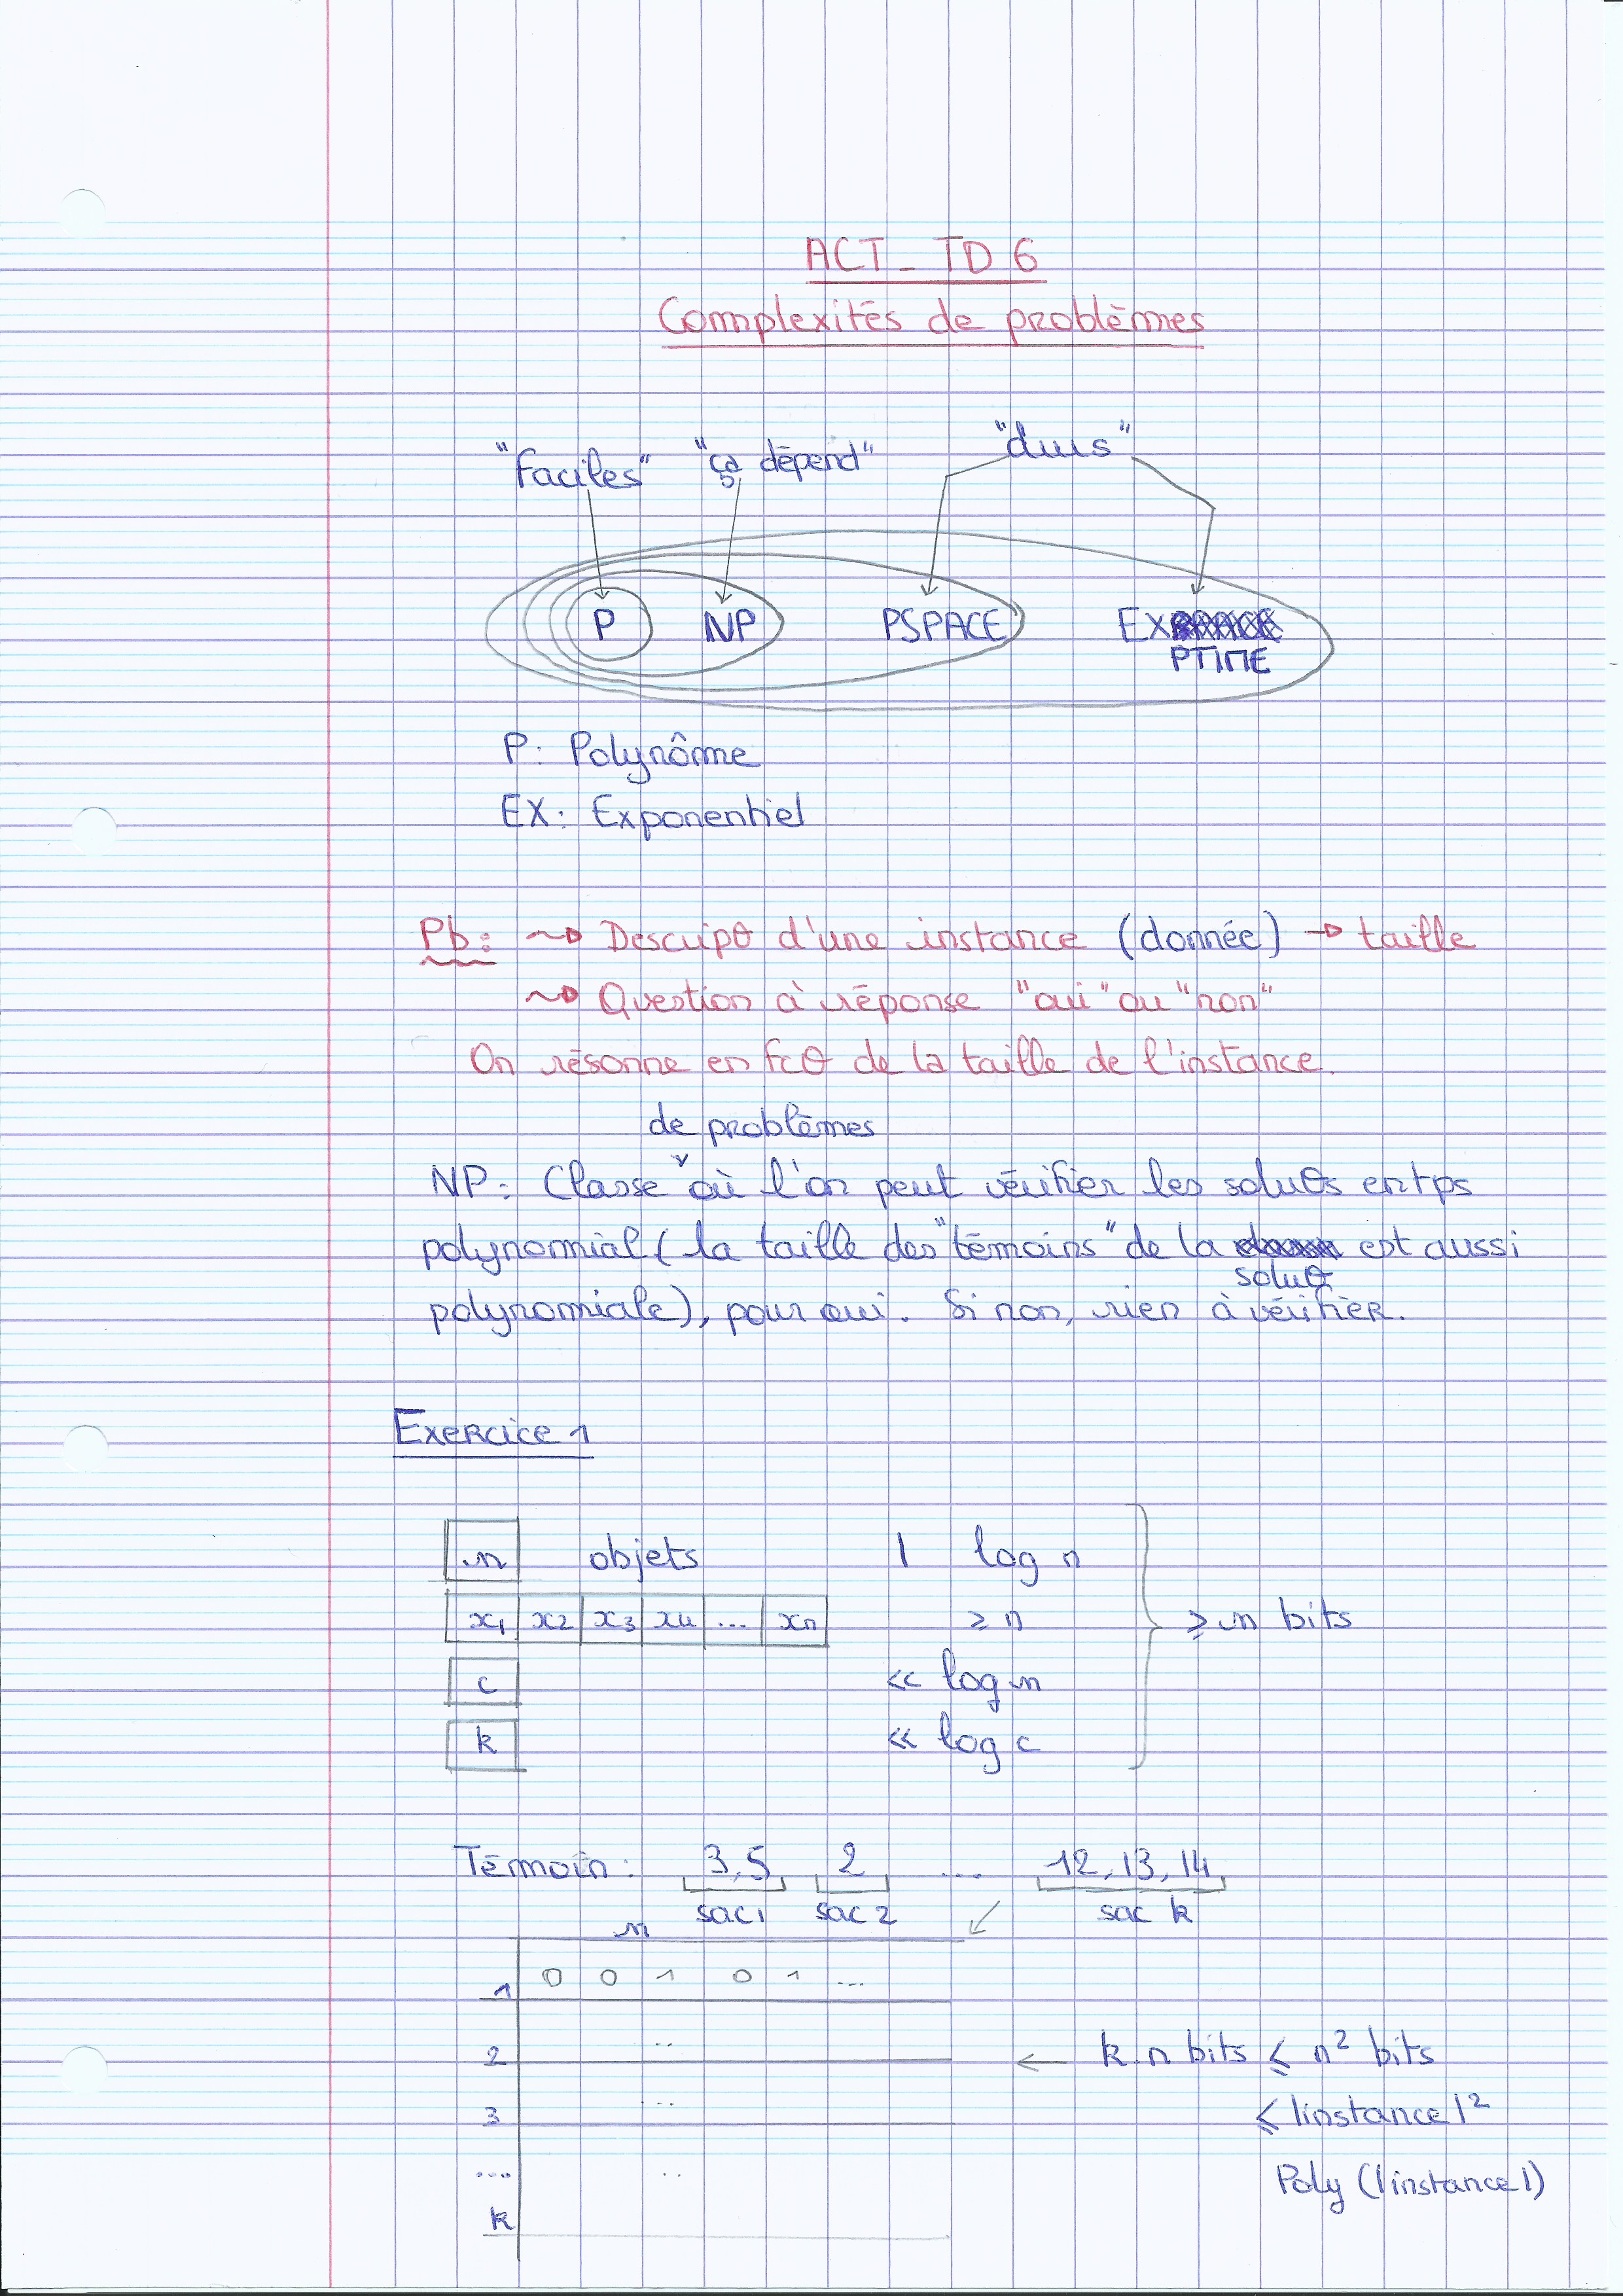 ACT - TD 6
Complexités de problèmes
"faciles" "ça dépend" "durs"
P NP PSPACE EX
PTIME
P: Polynôme
EX: Exponentiel
Pb: ⇝ Descripθ d'une instance (donnée) → taille
⇝ Question à réponse "oui" ou "non"
On résonne en fcθ de la taille de l'instance.
de problèmes
NP: Classe ˅ où l'on peut vérifier les soluθs en tps
polynomial (la taille des "témoins" de la est aussi
soluθ
polynomiale), pour oui. Si non, rien à vérifier.
Exercice 1
n objets | log n
x1 x2 x3 x4 ... xn ≥ n ≥ n bits
c << log n
k << log c
Témoin: 3,5 2 ... 12,13,14
sac 1 sac 2 sac k
n
1 0 0 1 0 1 ...
2 .. ← k.n bits ≤ n² bits
3 .. ≤ |instance|²
.... .. Poly (|instance|)
k